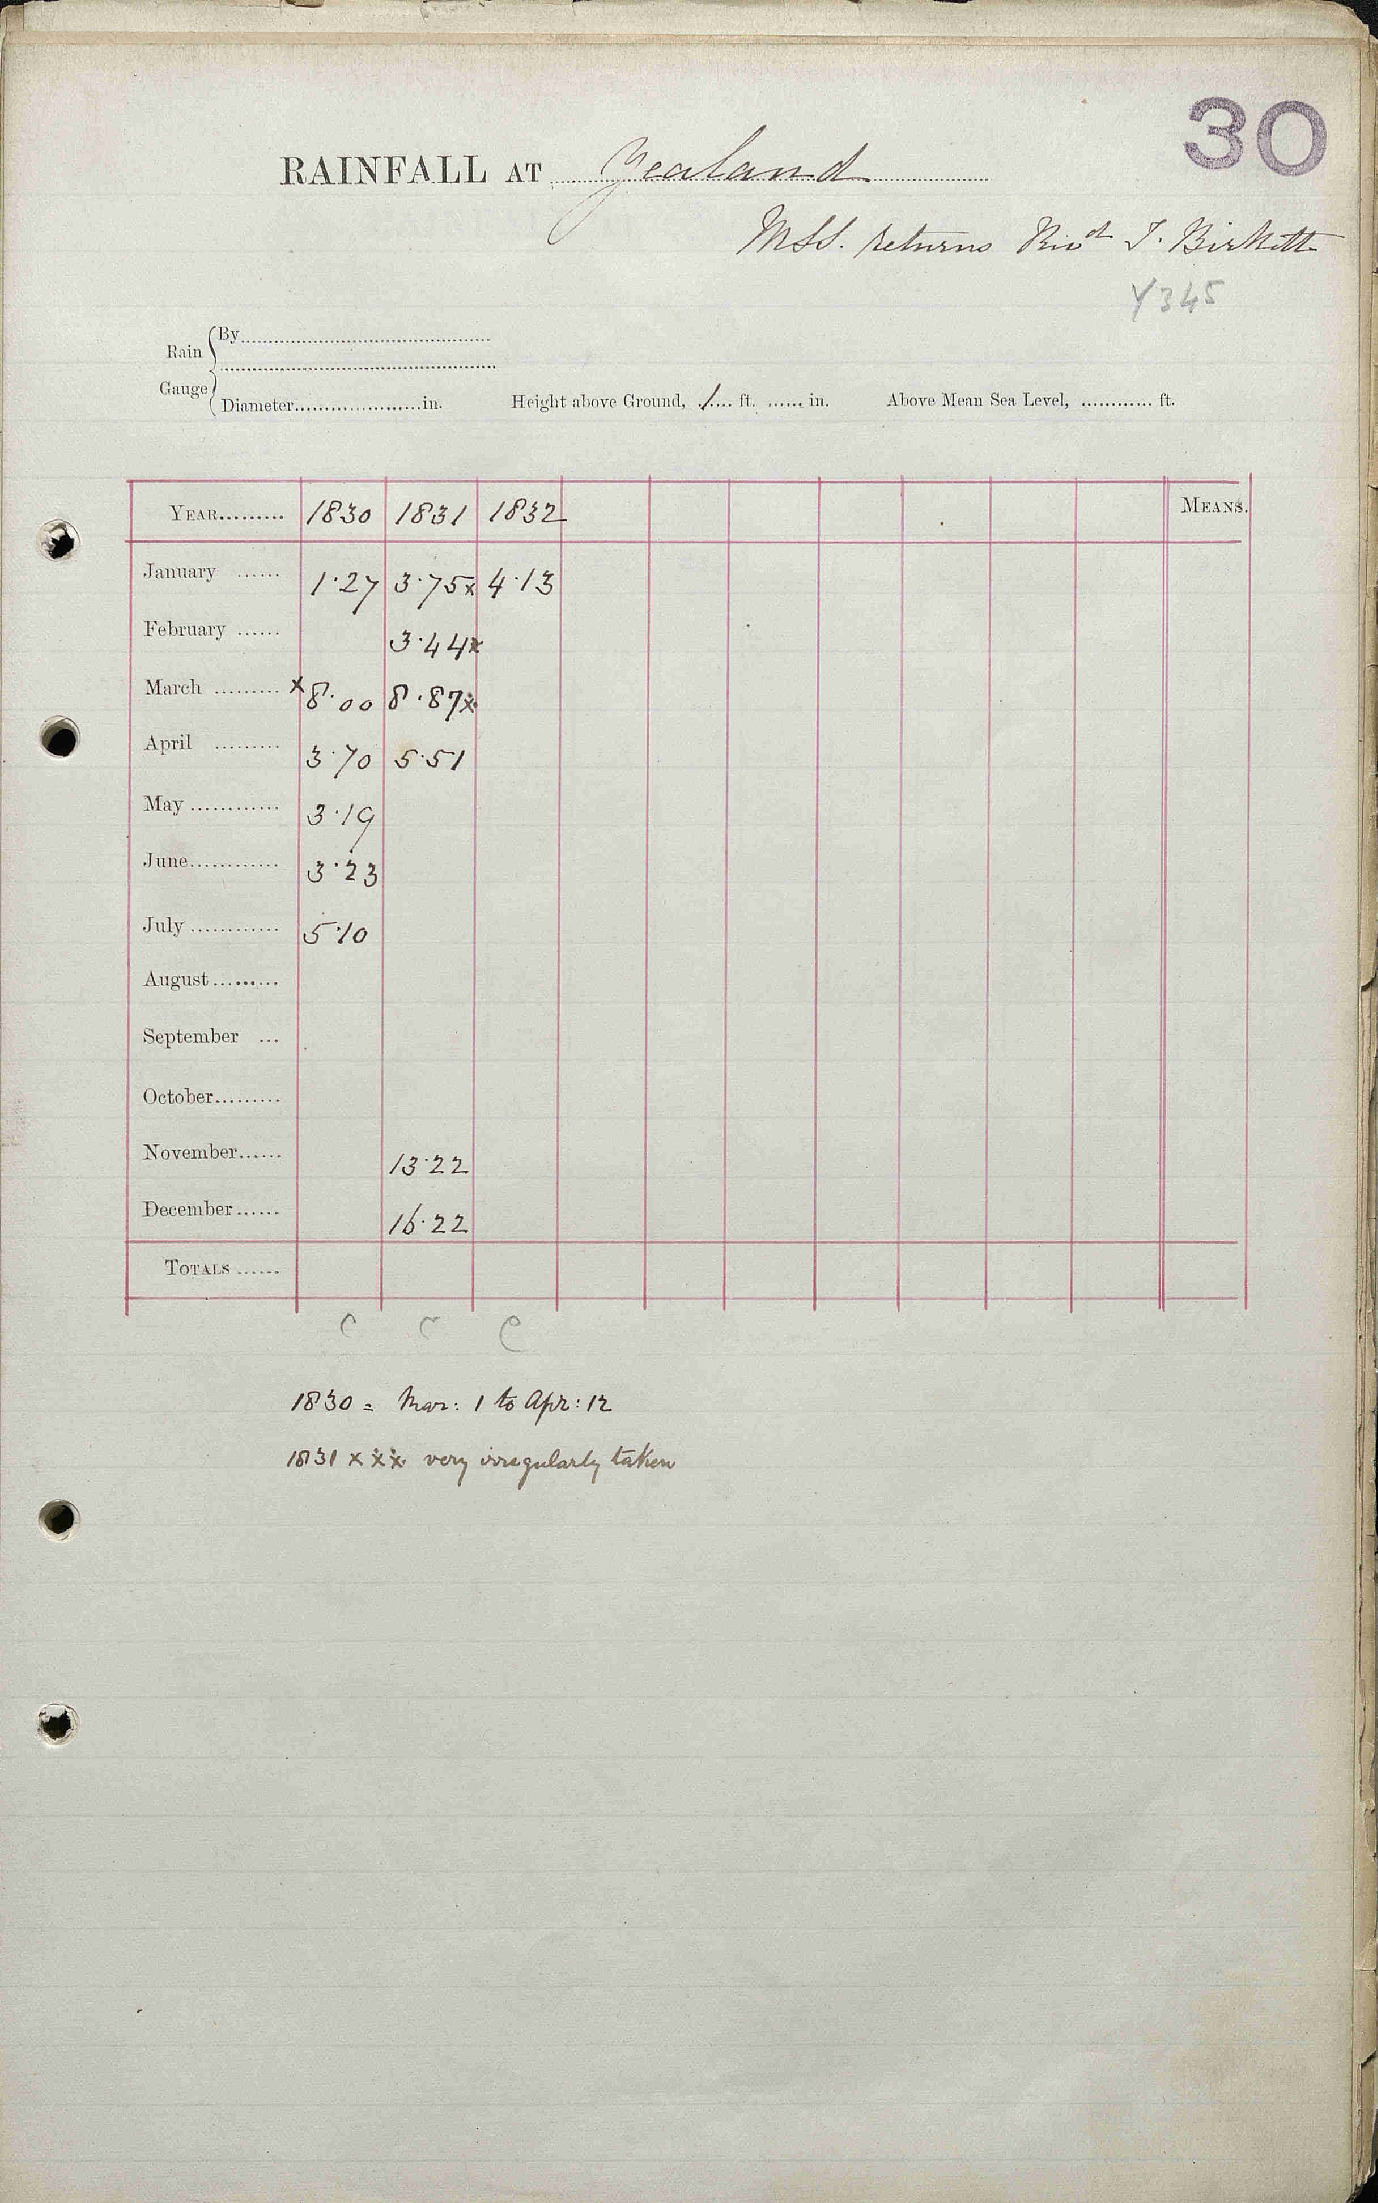 30
RAINFALL AT Yealand
MSS. returns Recd T. Birkett
Y345
Rain Gauge
By
Diameter in. Height above Ground, 1 ft. in. Above Mean Sea Level, ft.
YEAR 1830 1831 1832 MEANS.
January 1.27 3.75x 4.13
February 3.44x
March x8.00 8.87x
April 3.70 5.51
May 3.19
June 3.23
July 5.10
August
September
October
November 13.22
December 16.22
TOTALS
C C C
1830 = Mar: 1 to Apr: 12
1831 x x x very irregularly taken